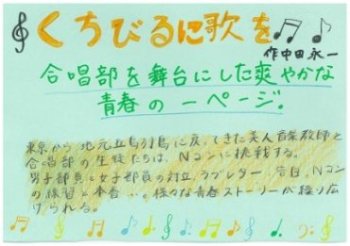 くちびるに歌を
作中田永一
合唱部を舞台にした爽やかな
青春の一ページ。
東京から地元五島列島に戻ってきた美人音楽教師と
合唱部の生徒たちは、Nコンに挑戦する。
男子部員と女子部員の対立、ラブレター、告白、Nコン
の練習と本番…。様々な青春ストーリーが繰り広
げられる。